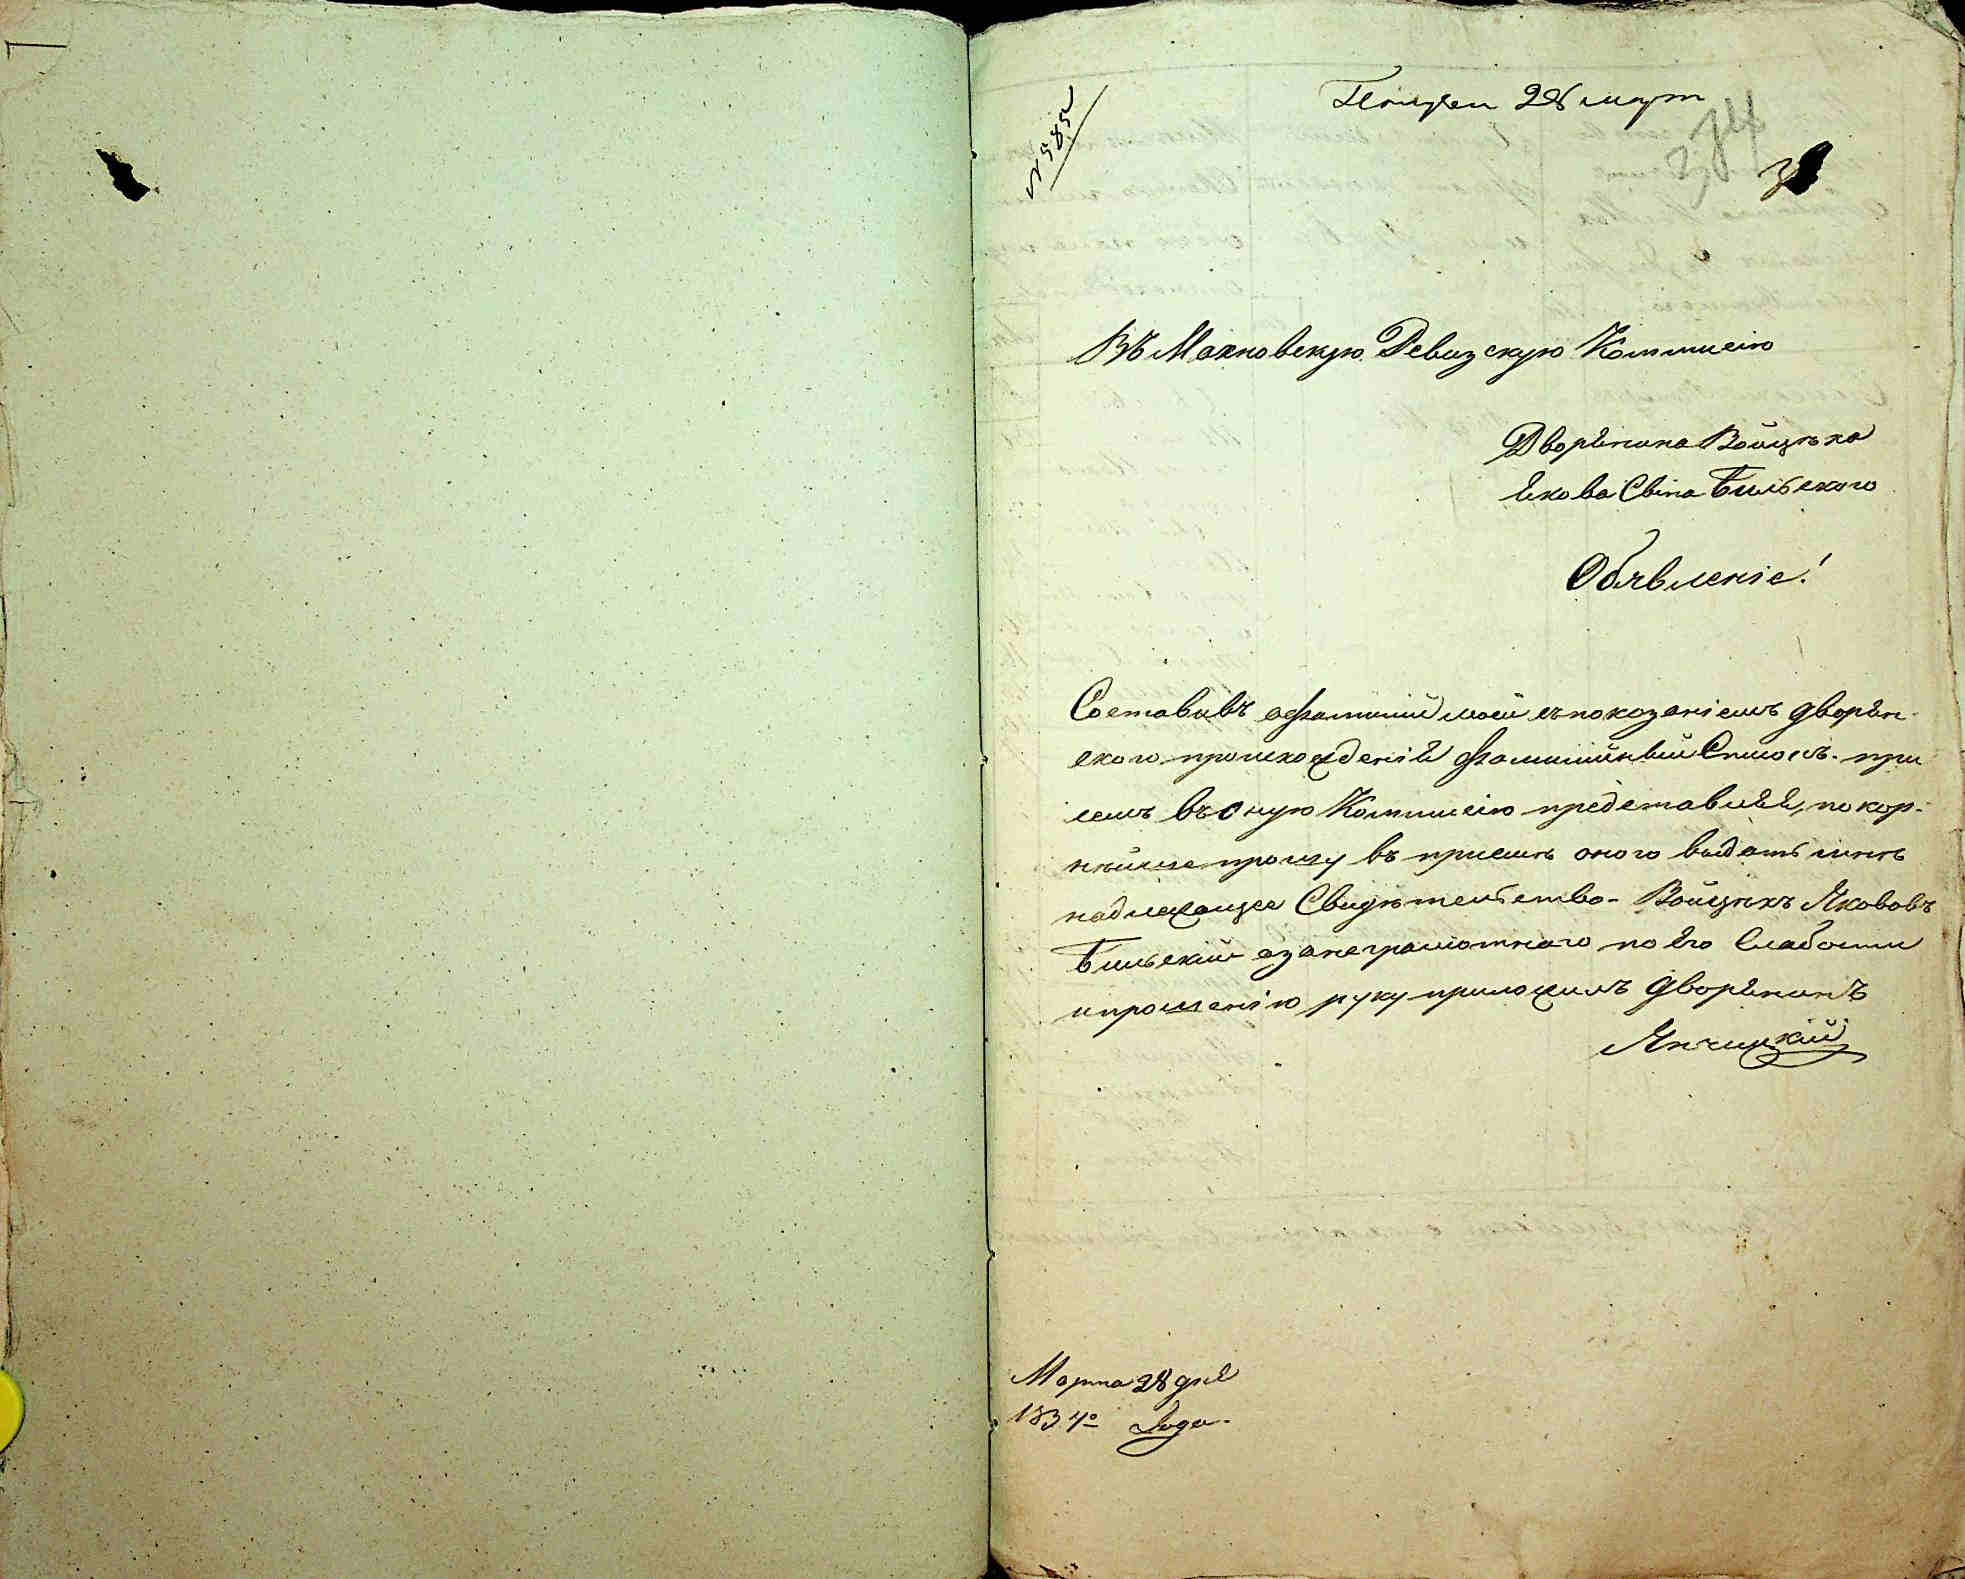 № 585
Получен 28 март
274
3
Въ Махновскую Ревизскую Коммисію
Дворянина Войцѣха
Якова Сына Бильского
Обявленіе!
Составивъ офамиліи моей съпоказаніемъ дворян-
ского происхожденія Фамилийный Списокъ. при
семъ въоную Коммисію представляя, покор-
нѣйше прошу въ приемѣ оного выдать мнѣ
надлежащее Свидѣтельство- Войцѣхъ Якововъ
Бильскій азанеграмотнаго по Его Слабости
ипрошенію руку приложилъ Дворянинъ
Янчицкій
Марта 28 дня
1834го Года.